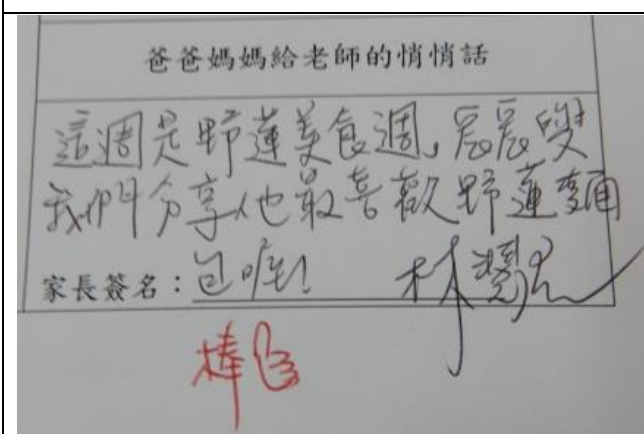 爸爸媽媽給老師的悄悄話
這週是野蓮美食週,辰辰與
我們分享他最喜歡野蓮麵
家長簽名:包喔!
棒